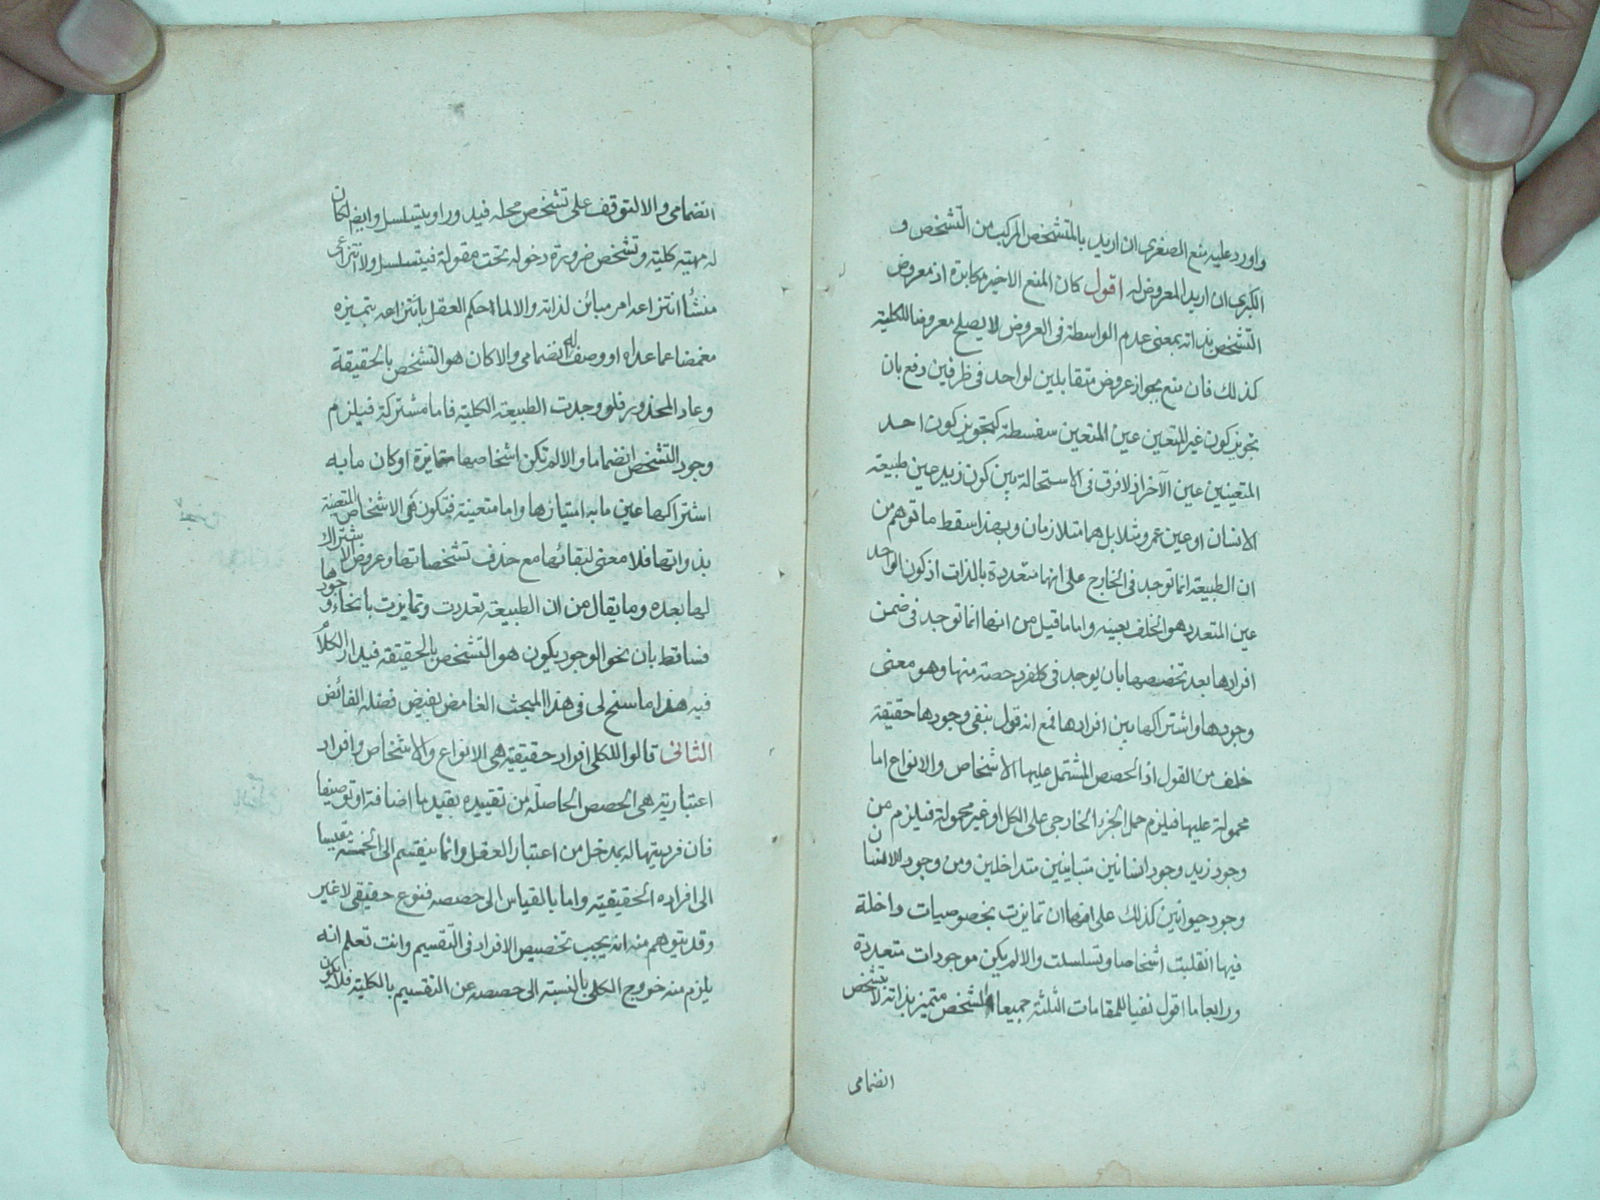 واورد عليه بمنع الصغرى ان اريد بالمتشخص المركب من التشخص و
الكبرى ان اريد المعروض له اقول كان المنع الاخير مكابرة اذ معروض
التشخص بذاته بمعنى عدم الواسطة في العروض لا يصلح معروضا للكلية
كذلك فان منع بجواز عروض متقابلين لواحد في ظرفين دفع بان
تجويز كون غير المتعين عين المتعين سفسطة كتجويز كون احد
المتعينين عين الآخر اذ لا فرق في الاستحالة بين كون زيد عين طبيعة
الانسان او عين عمرو مثلا بل هما متلازمان وبهذا سقط ما توهم من
ان الطبيعة انما توجد في الخارج على انها متعددة بالذات اذ كون الواحد
عين المتعدد هو الخلف بعينه واما ما قيل من انها انما توجد في ضمن
افرادها بعد تخصصها بان يوجد في كل فرد حصة منها وهو معنى
وجودها واشتراكها بين افرادها فمع انه قول بنفي وجودها حقيقة
خلف من القول اذ الحصص المشتمل عليها الاشخاص والانواع اما
محمولة عليها فيلزم حمل الجزء الخارجي على الكل او غير محمولة فيلزم من
وجود زيد وجود انسانين متباينين متداخلين ومن وجود الانسان
وجود حيوانين كذلك على انها ان تمايزت بخصوصيات داخلة
فيها انقلبت اشخاصا وتسلسلت والا لم يكن موجودات متعددة
ورابعا ما اقول نفيا للمقامات الثلثة جميعا المشخص متميز بذاته لا بتشخص
انضمامى
انضمامى والا لتوقف على تشخص محله فيدور او يتسلسل وايضا لكان
له مهية كلية وتشخص ضرورة دخوله تحت مقولة فيتسلسل ولا انتزاعى
منشأ انتزاعه امر مبائن لذاته والا لما حكم العقل بانتزاعه بتميزه
مغمضا عما عداه او وصف له انضمامى والا كان هو التشخص بالحقيقة
وعاد المحذور فلو وجدت الطبيعة الكلية فاما مشتركة فيلزم
وجود التشخص انضماما والا لم تكن اشخاصها متمايزة او كان ما به
اشتراكها عين ما به امتيازها واما متعينة فتكون هي الاشخاص المتعينة
بذواتها فلا معنى لبقائها مع حذف تشخصاتها وعروض الاشتراك
لها بعده وما يقال من ان الطبيعة تعددت وتمايزت بانحاء وجودها
فساقط بان نحو الوجود يكون هو التشخص بالحقيقة فيدار الكلام
فيه هذا ما سنح لي في هذا المبحث الغامض بفيض فضله الفائض
الثانى قالوا للكلى افراد حقيقية هى الانواع والاشخاص وافراد
اعتبارية هى الحصص الحاصلة من تقييده بقيد ما اضافة او توصيفا
فان فرديتها له بمدخل من اعتبار العقل وانما ينقسم الى الخمسة مقيسا
الى افراده الحقيقية واما بالقياس الى حصصه فنوع حقيقى لا غير
وقد يتوهم منه انه يجب تخصيص الافراد فى التقسيم وانت تعلم انه
يلزم منه خروج الكلى بالنسبة الى حصصه عن التقسيم بالكلية فلا يكون